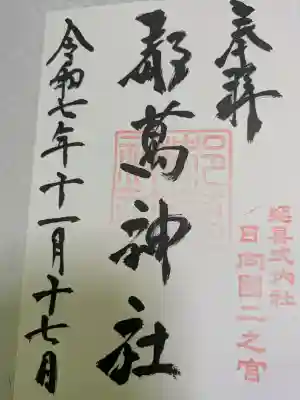 奉拝
延喜式内社
日向國二之宮
都萬神社
令和七年十一月十七日